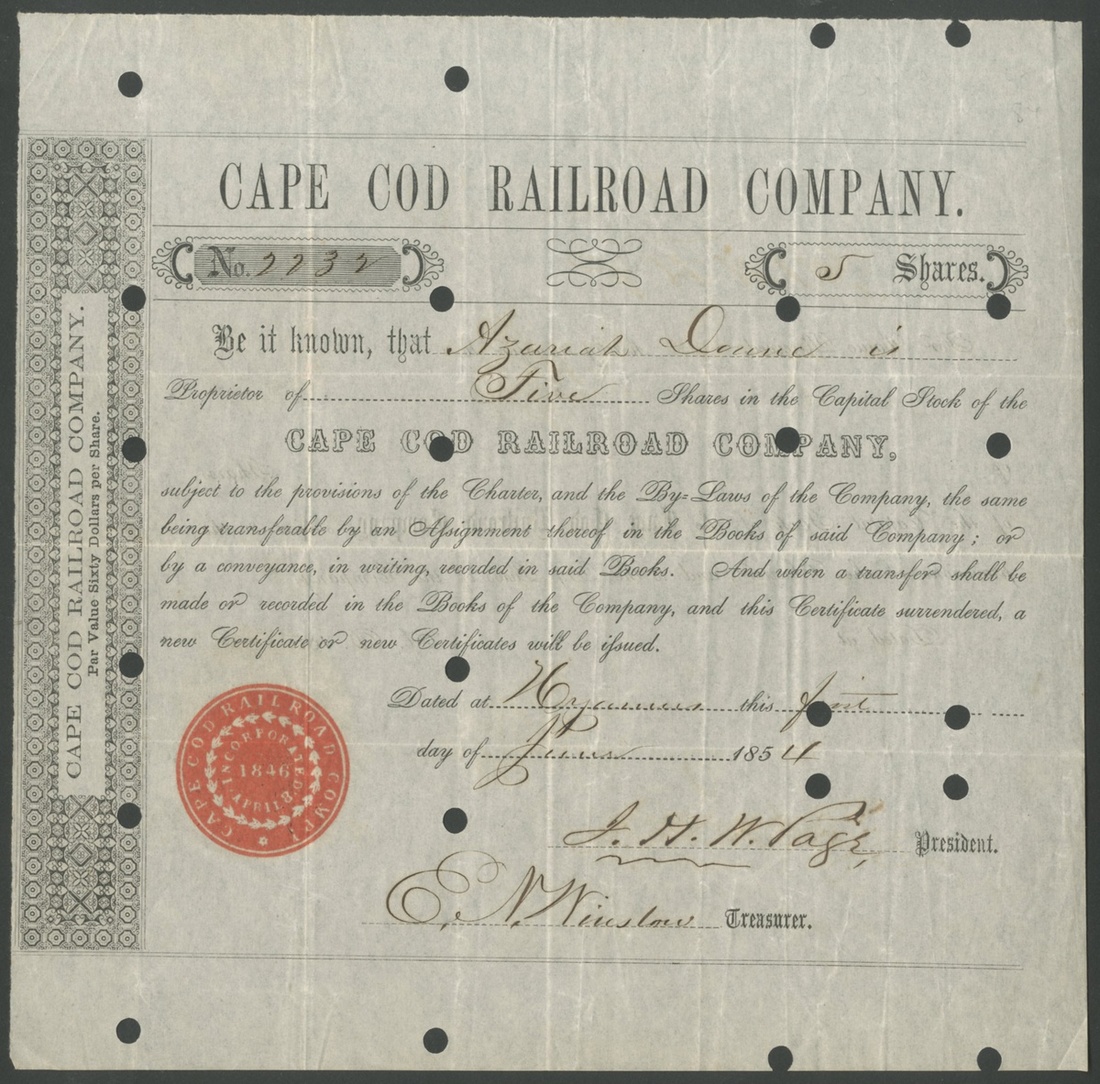 CAPE COD RAILROAD COMPANY.
No. 2232
5 Shares.
Be it known, that Azariah Doane is
Proprietor of Five Shares in the Capital Stock of the
CAPE COD RAILROAD COMPANY,
subject to the provisions of the Charter, and the By-Laws of the Company, the same
being transferable by an Assignment thereof in the Books of said Company; or
by a conveyance, in writing, recorded in said Books. And when a transfer shall be
made or recorded in the Books of the Company, and this Certificate surrendered, a
new Certificate or new Certificates will be issued.
Dated at Hyannis this first
day of June 1854
J. H. W. Page, President.
E. N. Winslow Treasurer.
CAPE COD RAILROAD COMPANY.
Par Value Sixty Dollars per Share.
CAPE COD RAILROAD COMPY
INCORPORATED
1846
APRIL 8